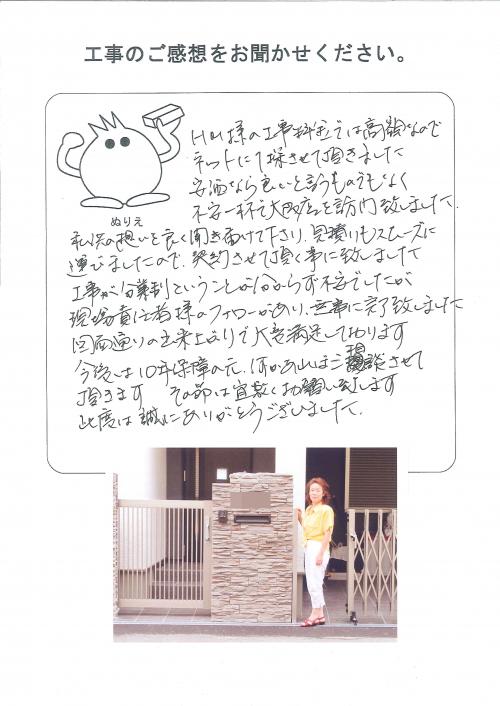 工事のご感想をお聞かせください。
HM様の工事料金では高額なので
ネットにて探させて頂きました
安価なら良いと言うものでもなく
不安一杯で大阪店を訪問致しました.
ぬりえ
私共の想いを良く聞き届けて下さり、見積りもスムーズに
運びましたので、契約させて頂く事に致しました
工事が分業制ということが分からず不安でしたが
現場責任者様のフォローがあり、無事に完了致しました
図面通りの出来上がりで大変満足しております
今後は10年保障の元、何かあればご相談させて
頂きます その節は宜敷くお願い致します
此度は誠にありがとうございました.